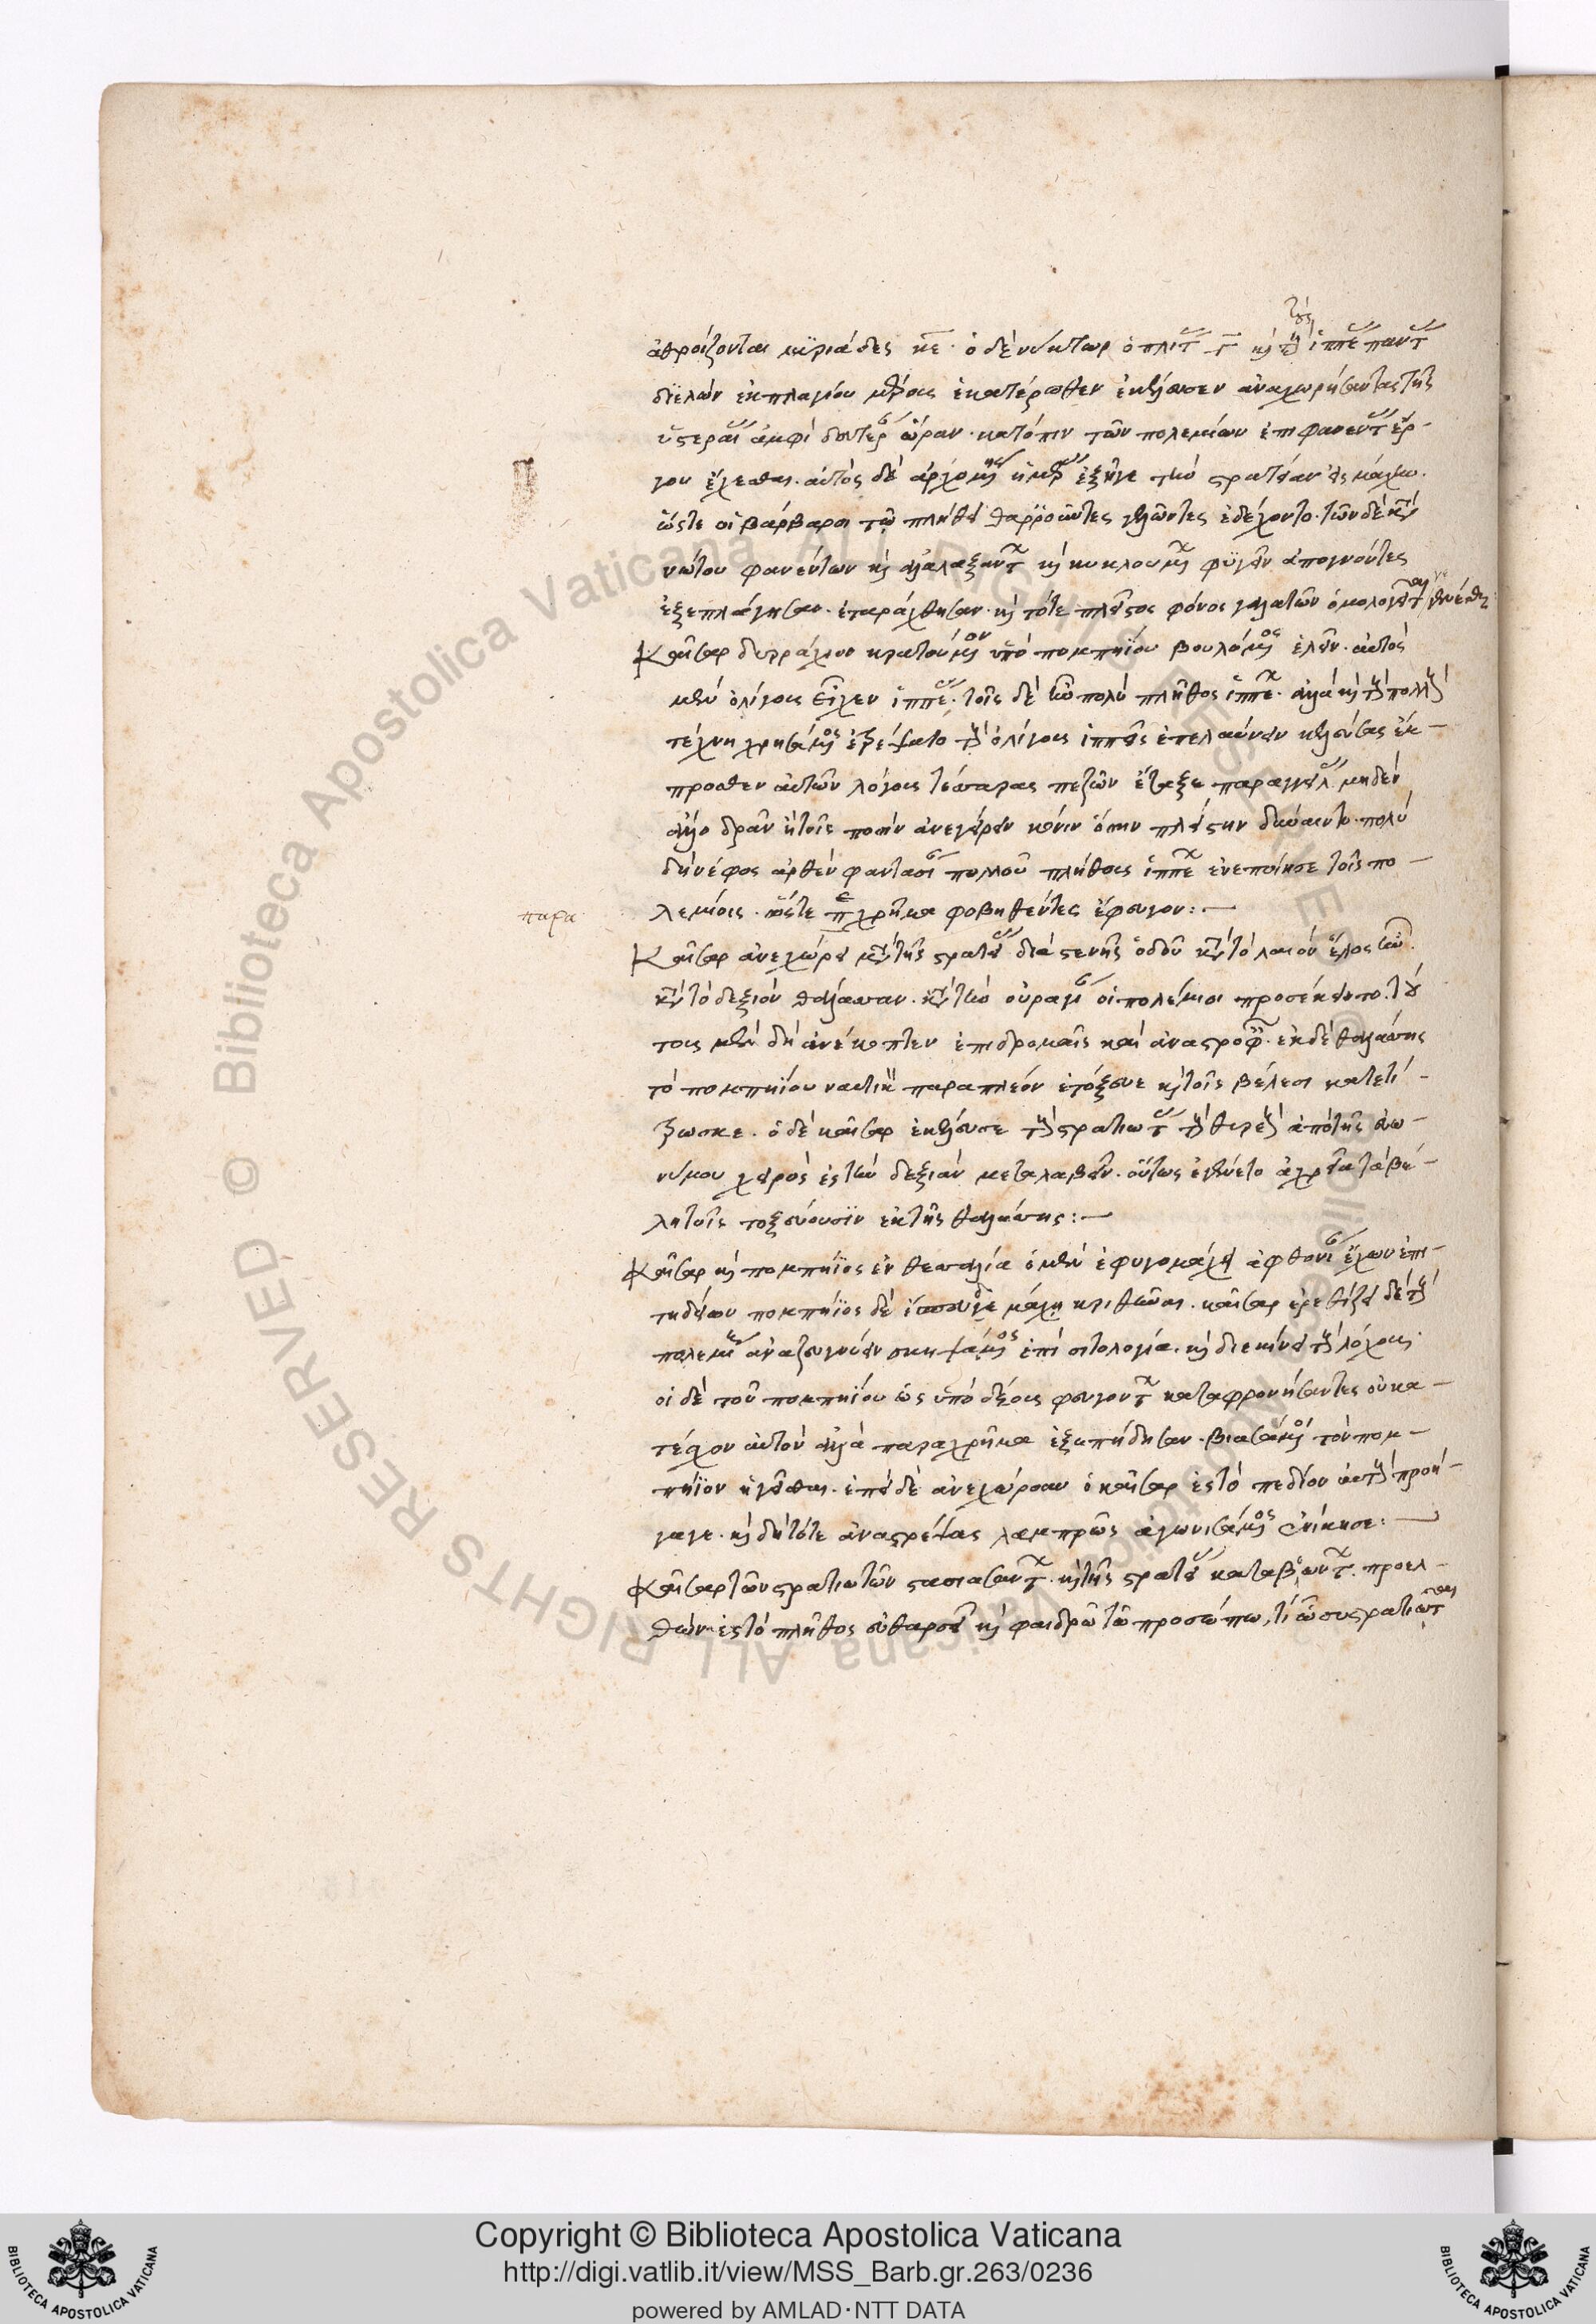 ἀθροίζονται μυριάδες κε· ὁ δὲ νύκτωρ ὁπλίτας τ καὶ τοὺς ἱππέας πάντας
διελὼν ἐκ πλαγίου μέρους ἑκατέρωθεν ἐκέλευσεν ἀναχωρήσαντας τῆς
ὑστεραίας ἀμφὶ δευτέραν ὥραν κατόπιν τῶν πολεμίων ἐπιφανέντας ἔρ-
γου ἔχεσθαι. αὐτὸς δὲ ἀρχομένης ἡμέρας ἐξῆγε τὴν στρατείαν εἰς μάχην.
ὥστε οἱ βάρβαροι τῷ πλήθει θαρροῦντες γελῶντες ἐδέχοντο. τῶν δὲ κατὰ
νώτου φανέντων καὶ ἀλαλαξάντων καὶ κυκλουμένων φυγεῖν ἀπογνόντες
ἐξεπλάγησαν. ἐταράχθησαν. καὶ τότε πλεῖστος φόνος γαλατῶν ὁμολογεῖται γενέσθαι
Καῖσαρ δυρράχιον κρατούμενον ὑπὸ πομπηΐου βουλόμενος ἑλεῖν. αὐτὸς
μὲν ὀλίγους εἶχεν ἱππέας. τοῖς δὲ ἦν πολὺ πλῆθος ἱππέων. ἀλλὰ καὶ τοὺς πολλοὺς
τέχνῃ χρησάμενος ἐτρέψατο τοὺς ὀλίγους ἱππεῖς ἐπελαύνειν κελεύσας ἔμ-
προσθεν αὐτῶν λόχους τέσσαρας πεζῶν ἔταξε παραγγείλας μηδὲν
ἄλλο δρᾶν ἢ τοῖς ποσὶν ἀνεγείρειν κόνιν ὅσην πλείστην δύναιντο. πολὺ
δὴ νέφος ἀρθὲν φαντασίαν πολλοῦ πλήθους ἱππέων ἐνεποίησε τοῖς πο-
παρα λεμίοις. ὥστε παραχρῆμα φοβηθέντες ἔφυγον:—
Καῖσαρ ἀνεχώρει μετὰ τῆς στρατείας διὰ στενῆς ὁδοῦ κατὰ τὸ λαιὸν ἕλος ἦν.
κατὰ τὸ δεξιὸν θάλασσαν. κατὰ τὴν οὐραγίαν οἱ πολέμιοι προσέκειντο. τού-
τους μὲν δὴ ἀνέκοπτεν ἐπιδρομαῖς καὶ ἀναστροφαῖς. ἐκ δὲ θαλάσσης
τὸ πομπηΐου ναυτικὸν παραπλέον ἐτόξευε καὶ τοῖς βέλεσι κατετί-
τρωσκε. ὁ δὲ καῖσαρ ἐκέλευσε τοὺς στρατιώτας τοὺς θυρεοὺς ἀπὸ τῆς εὐω-
νύμου χειρὸς ἐς τὴν δεξιὰν μεταλαβεῖν. οὕτως ἐγένετο ἀχρεῖα τὰ βέ-
λη τοῖς τοξεύουσιν ἐκ τῆς θαλάσσης:—
Καῖσαρ καὶ πομπήϊος ἐν θεσσαλίᾳ ὁ μὲν ἐφυγομάχει ἀφθονίαν ἔχων ἐπι-
τηδείων πομπήϊος δὲ ἔσπευδε μάχῃ κριθῶναι. καῖσαρ ἐρεθίζει δὲ τοὺς
πολεμίους ἀναζευγνύειν σκηψάμενος ἐπὶ σιτολογίᾳ. καὶ διεκίνει τοὺς λόχους.
οἱ δὲ τοῦ πομπηΐου ὡς ὑπὸ δέους φευγόντων καταφρονήσαντες οὐ κα-
τέσχον αὑτοὺς ἀλλὰ παραχρῆμα ἐξεπήδησαν. βιασάμενοι τὸν πομ-
πήϊον ἡγεῖσθαι. ἐπεὶ δὲ ἀνεχώρησαν ὁ καῖσαρ ἐς τὸ πεδίον αὐτοὺς προή-
γαγε. καὶ δὴ τότε ἀναστρέψας λαμπρῶς ἀγωνισάμενος ἐνίκησε:—
Καῖσαρ τῶν στρατιωτῶν στασιασάντων. καὶ τῆς στρατείας καταβοώντων. προελ-
θὼν ἐς τὸ πλῆθος εὐθαρσεῖ καὶ φαιδρῷ τῷ προσώπῳ, τί ὦ συστρατιῶται
Copyright © Biblioteca Apostolica Vaticana
http://digi.vatlib.it/view/MSS_Barb.gr.263/0236
powered by AMLAD·NTT DATA